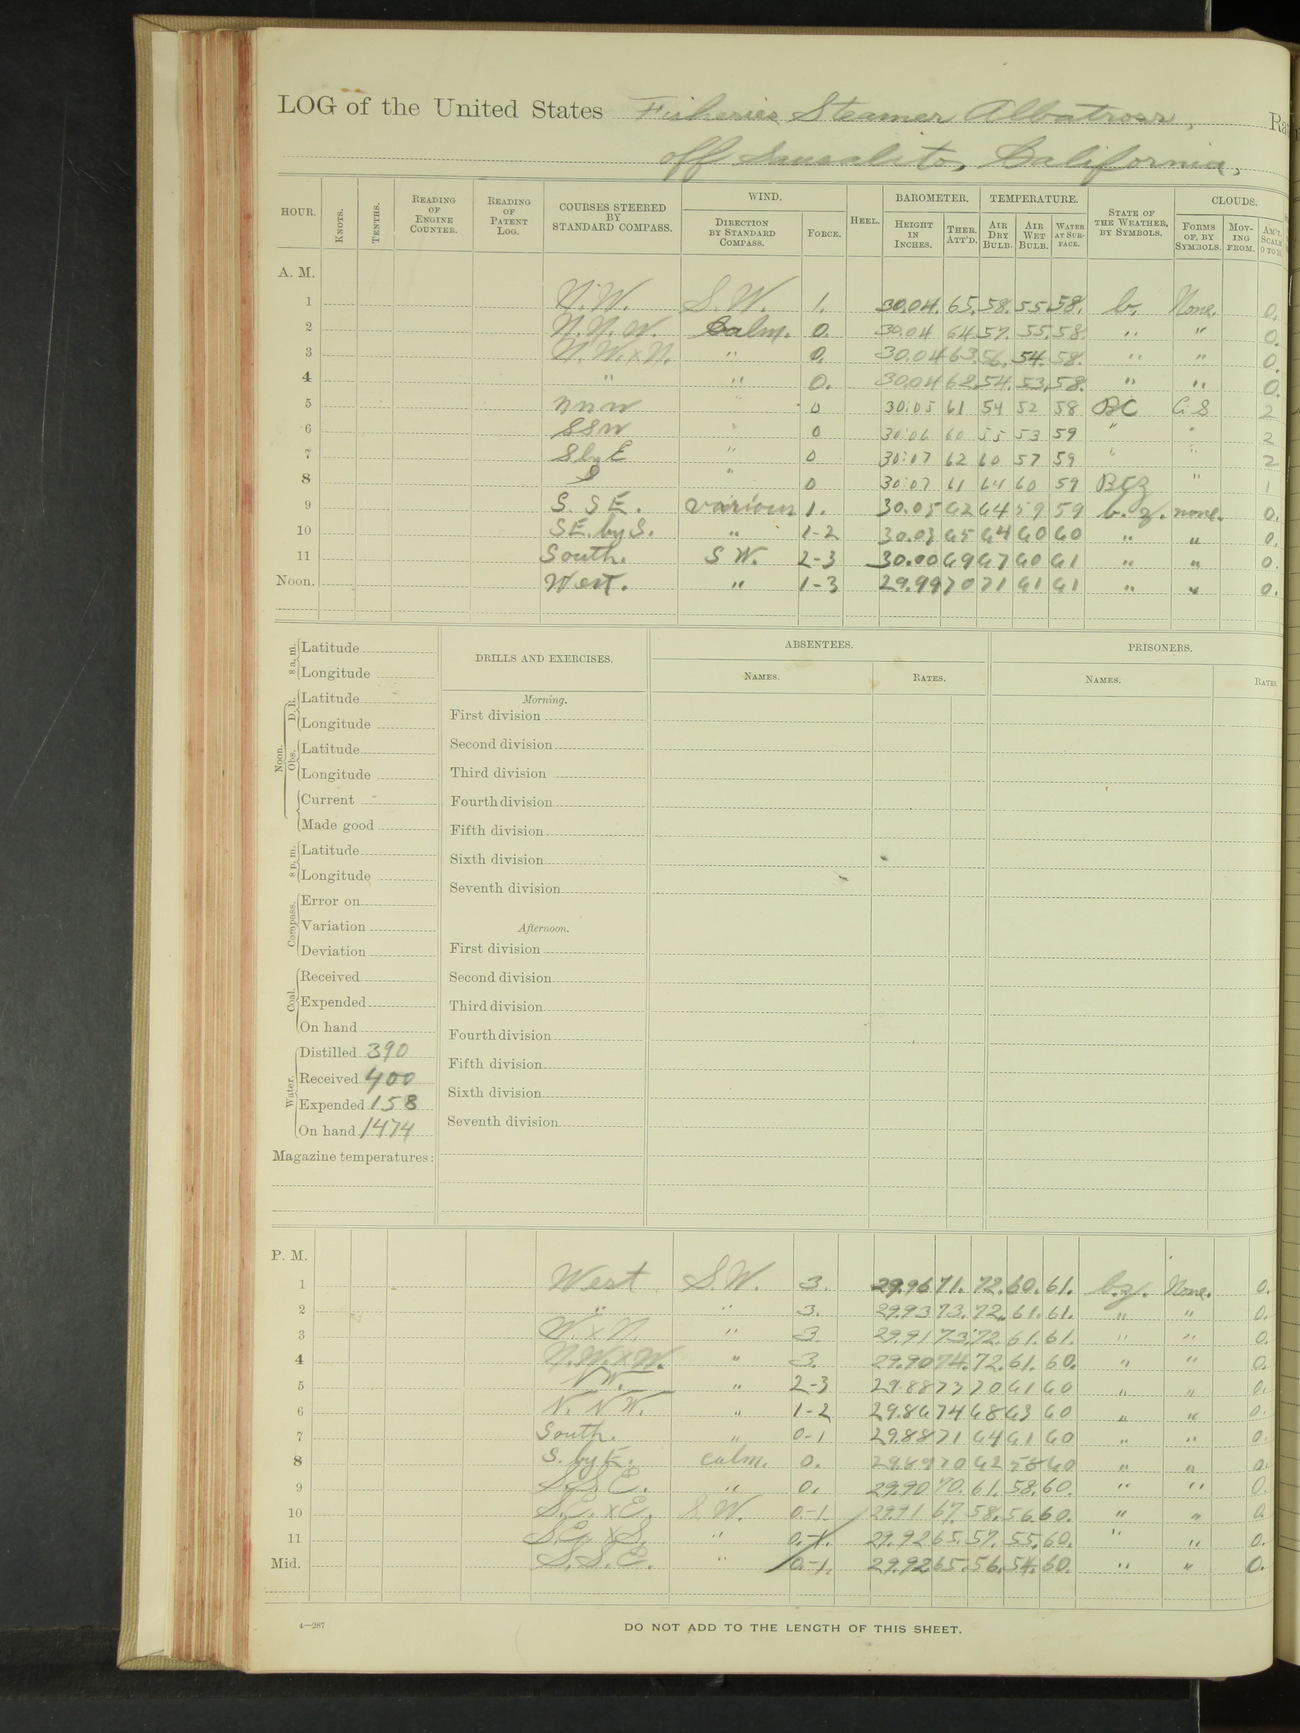 LOG of the United States Fisheries Steamer Albatross, Ra
off Sausalito, California,
HOUR. KNOTS. TENTHS. READING OF ENGINE COUNTER. READING OF PATENT LOG. COURSES STEERED BY STANDARD COMPASS. WIND. DIRECTION BY STANDARD COMPASS. FORCE. HEEL. BAROMETER. HEIGHT IN INCHES. THER. ATT'D. TEMPERATURE. AIR DRY BULB. AIR WET BULB. WATER AT SURFACE. STATE OF THE WEATHER, BY SYMBOLS. CLOUDS. FORMS OF, BY SYMBOLS. MOVING FROM. AM'T. SCALE 0 TO 10.
A. M.
1 N.W. S.W. 1. 30.04. 65. 58. 55. 58. b. None. 0.
2 N.N.W. Calm. 0. 30.04 64. 57. 55. 58. " " 0.
3 N.W.xN. " 0. 30.04 63. 56. 54. 58. " " 0.
4 " " 0. 30.04 62. 54. 53. 58. " " 0.
5 NNW 0 30.05 61 54 52 58 BC C.S 2
6 SSW " 0 30.06 60 55 53 59 " " 2
7 S by E " 0 30.07 62 60 57 59 " " 2
8 S " 0 30.07 61 64 60 59 BCZ " 1
9 S. S E. various 1. 30.05 62 64 59 59 b. z. none. 0.
10 SE. by S. " 1-2 30.03 65 64 60 60 " " 0.
11 South. S W. 2-3 30.00 69 67 60 61 " " 0.
Noon. West. " 1-3 29.99 70 71 61 61 " " 0.
8 a. m. Latitude
Longitude
Noon. D. R. Latitude
Longitude
Obs. Latitude
Longitude
Current
Made good
8 p. m. Latitude
Longitude
Compass. Error on
Variation
Deviation
Coal. Received
Expended
On hand
Water. Distilled 390
Received 400
Expended 158
On hand 1474
Magazine temperatures:
DRILLS AND EXERCISES.
Morning.
First division
Second division
Third division
Fourth division
Fifth division
Sixth division
Seventh division
Afternoon.
First division
Second division
Third division
Fourth division
Fifth division
Sixth division
Seventh division
ABSENTEES.
NAMES. RATES.
PRISONERS.
NAMES. RATES.
P. M.
1 West S.W. 3. 29.96 71. 72. 60. 61. b.z. None. 0.
2 " " 3. 29.93 73. 72. 61. 61. " " 0.
3 W.xN. " 3 29.91 73. 72. 61. 61. " " 0.
4 N.W.xW. " 3. 29.90 74. 72. 61. 60. " " 0.
5 NW. " 2-3 29.88 73 70 61 60 " " 0.
6 N. NW. " 1-2 29.86 74 68 63 60 " " 0.
7 South. " 0-1 29.88 71 64 61 60 " " 0.
8 S. by E. calm. 0. 29.89 70 62 58 60 " " 0.
9 S.S.E. " 0. 29.90 70. 61. 58. 60. " " 0.
10 S.E.xE. S W. 0-1. 29.91 67. 58. 56. 60. " " 0.
11 S.E.xS. " 0.-1. 29.92 65. 57. 55. 60. " " 0.
Mid. S.S.E. " 0-1. 29.92 65. 56. 54. 60. " " 0.
4—287
DO NOT ADD TO THE LENGTH OF THIS SHEET.